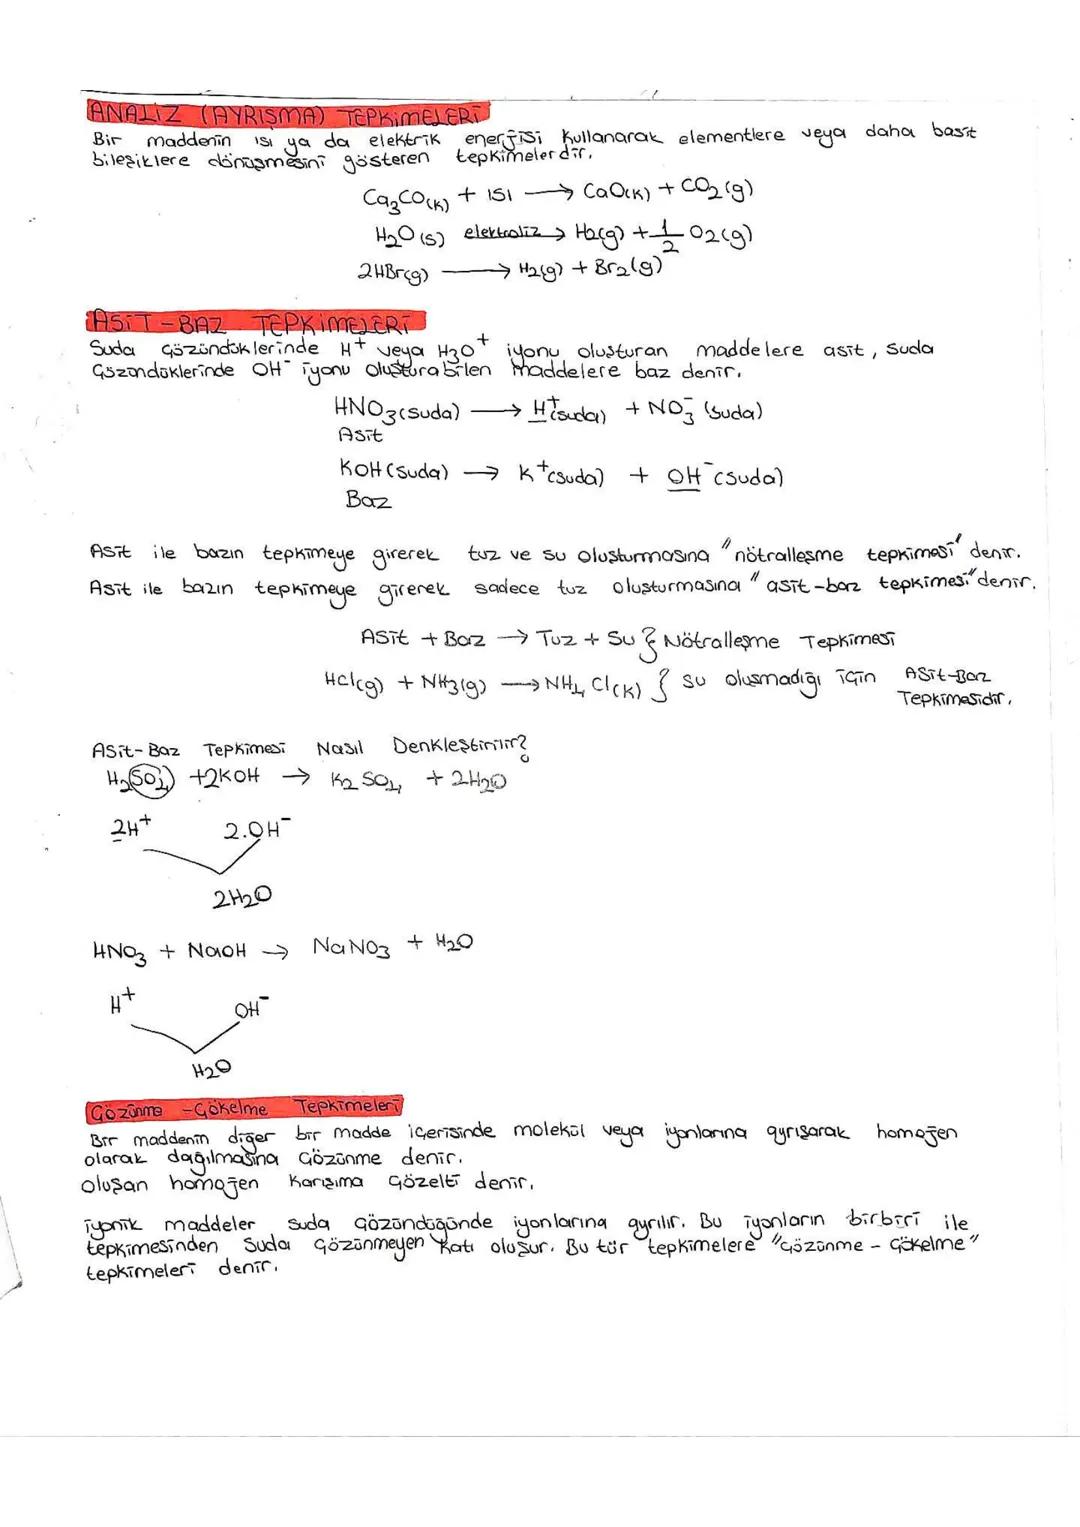 ANALİZ (AYRIŞMA) TEPKİMELERİ
Bir maddenin ısı ya da elektrik enerjisi kullanarak elementlere veya daha basit
bileşiklere dönüşmesini gösteren tepkimelerdir.
Ca₃CO(k) + ISI → CaO(k) + CO₂(g)
H₂O(s) elektroliz→ H₂(g) + 1/2 O₂(g)
2HBr(g) → H₂(g) + Br₂(g)
ASİT-BAZ TEPKİMELERİ
Suda çözündüklerinde H⁺ veya H₃O⁺ iyonu oluşturan maddelere asit, suda
çözündüklerinde OH⁻ iyonu oluşturabilen maddelere baz denir.
HNO₃(suda) → H⁺(suda) + NO₃⁻ (suda)
Asit
KOH(suda) → K⁺(suda) + OH⁻(suda)
Baz
Asit ile bazın tepkimeye girerek tuz ve su oluşturmasına "nötralleşme tepkimesi" denir.
Asit ile bazın tepkimeye girerek sadece tuz oluşturmasına "asit-baz tepkimesi" denir.
Asit + Baz → Tuz + Su } Nötralleşme Tepkimesi
HCl(g) + NH₃(g) → NH₄Cl(k) { su oluşmadığı için Asit-Baz
Tepkimesidir.
Asit-Baz Tepkimesi Nasıl Denkleştirilir?
H₂SO₄ + 2KOH → K₂SO₄ + 2H₂O
2H⁺ 2.OH⁻
2H₂O
HNO₃ + NaOH → NaNO₃ + H₂O
H⁺ OH⁻
H₂O
Çözünme -Çökelme Tepkimeleri
Bir maddenin diğer bir madde içerisinde molekül veya iyonlarına ayrışarak homojen
olarak dağılmasına çözünme denir.
oluşan homojen karışıma çözelti denir.
iyonik maddeler suda çözündüğünde iyonlarına ayrılır. Bu iyonların birbiri ile
tepkimesinden suda çözünmeyen katı oluşur. Bu tür tepkimelere "çözünme - çökelme"
tepkimeleri denir.